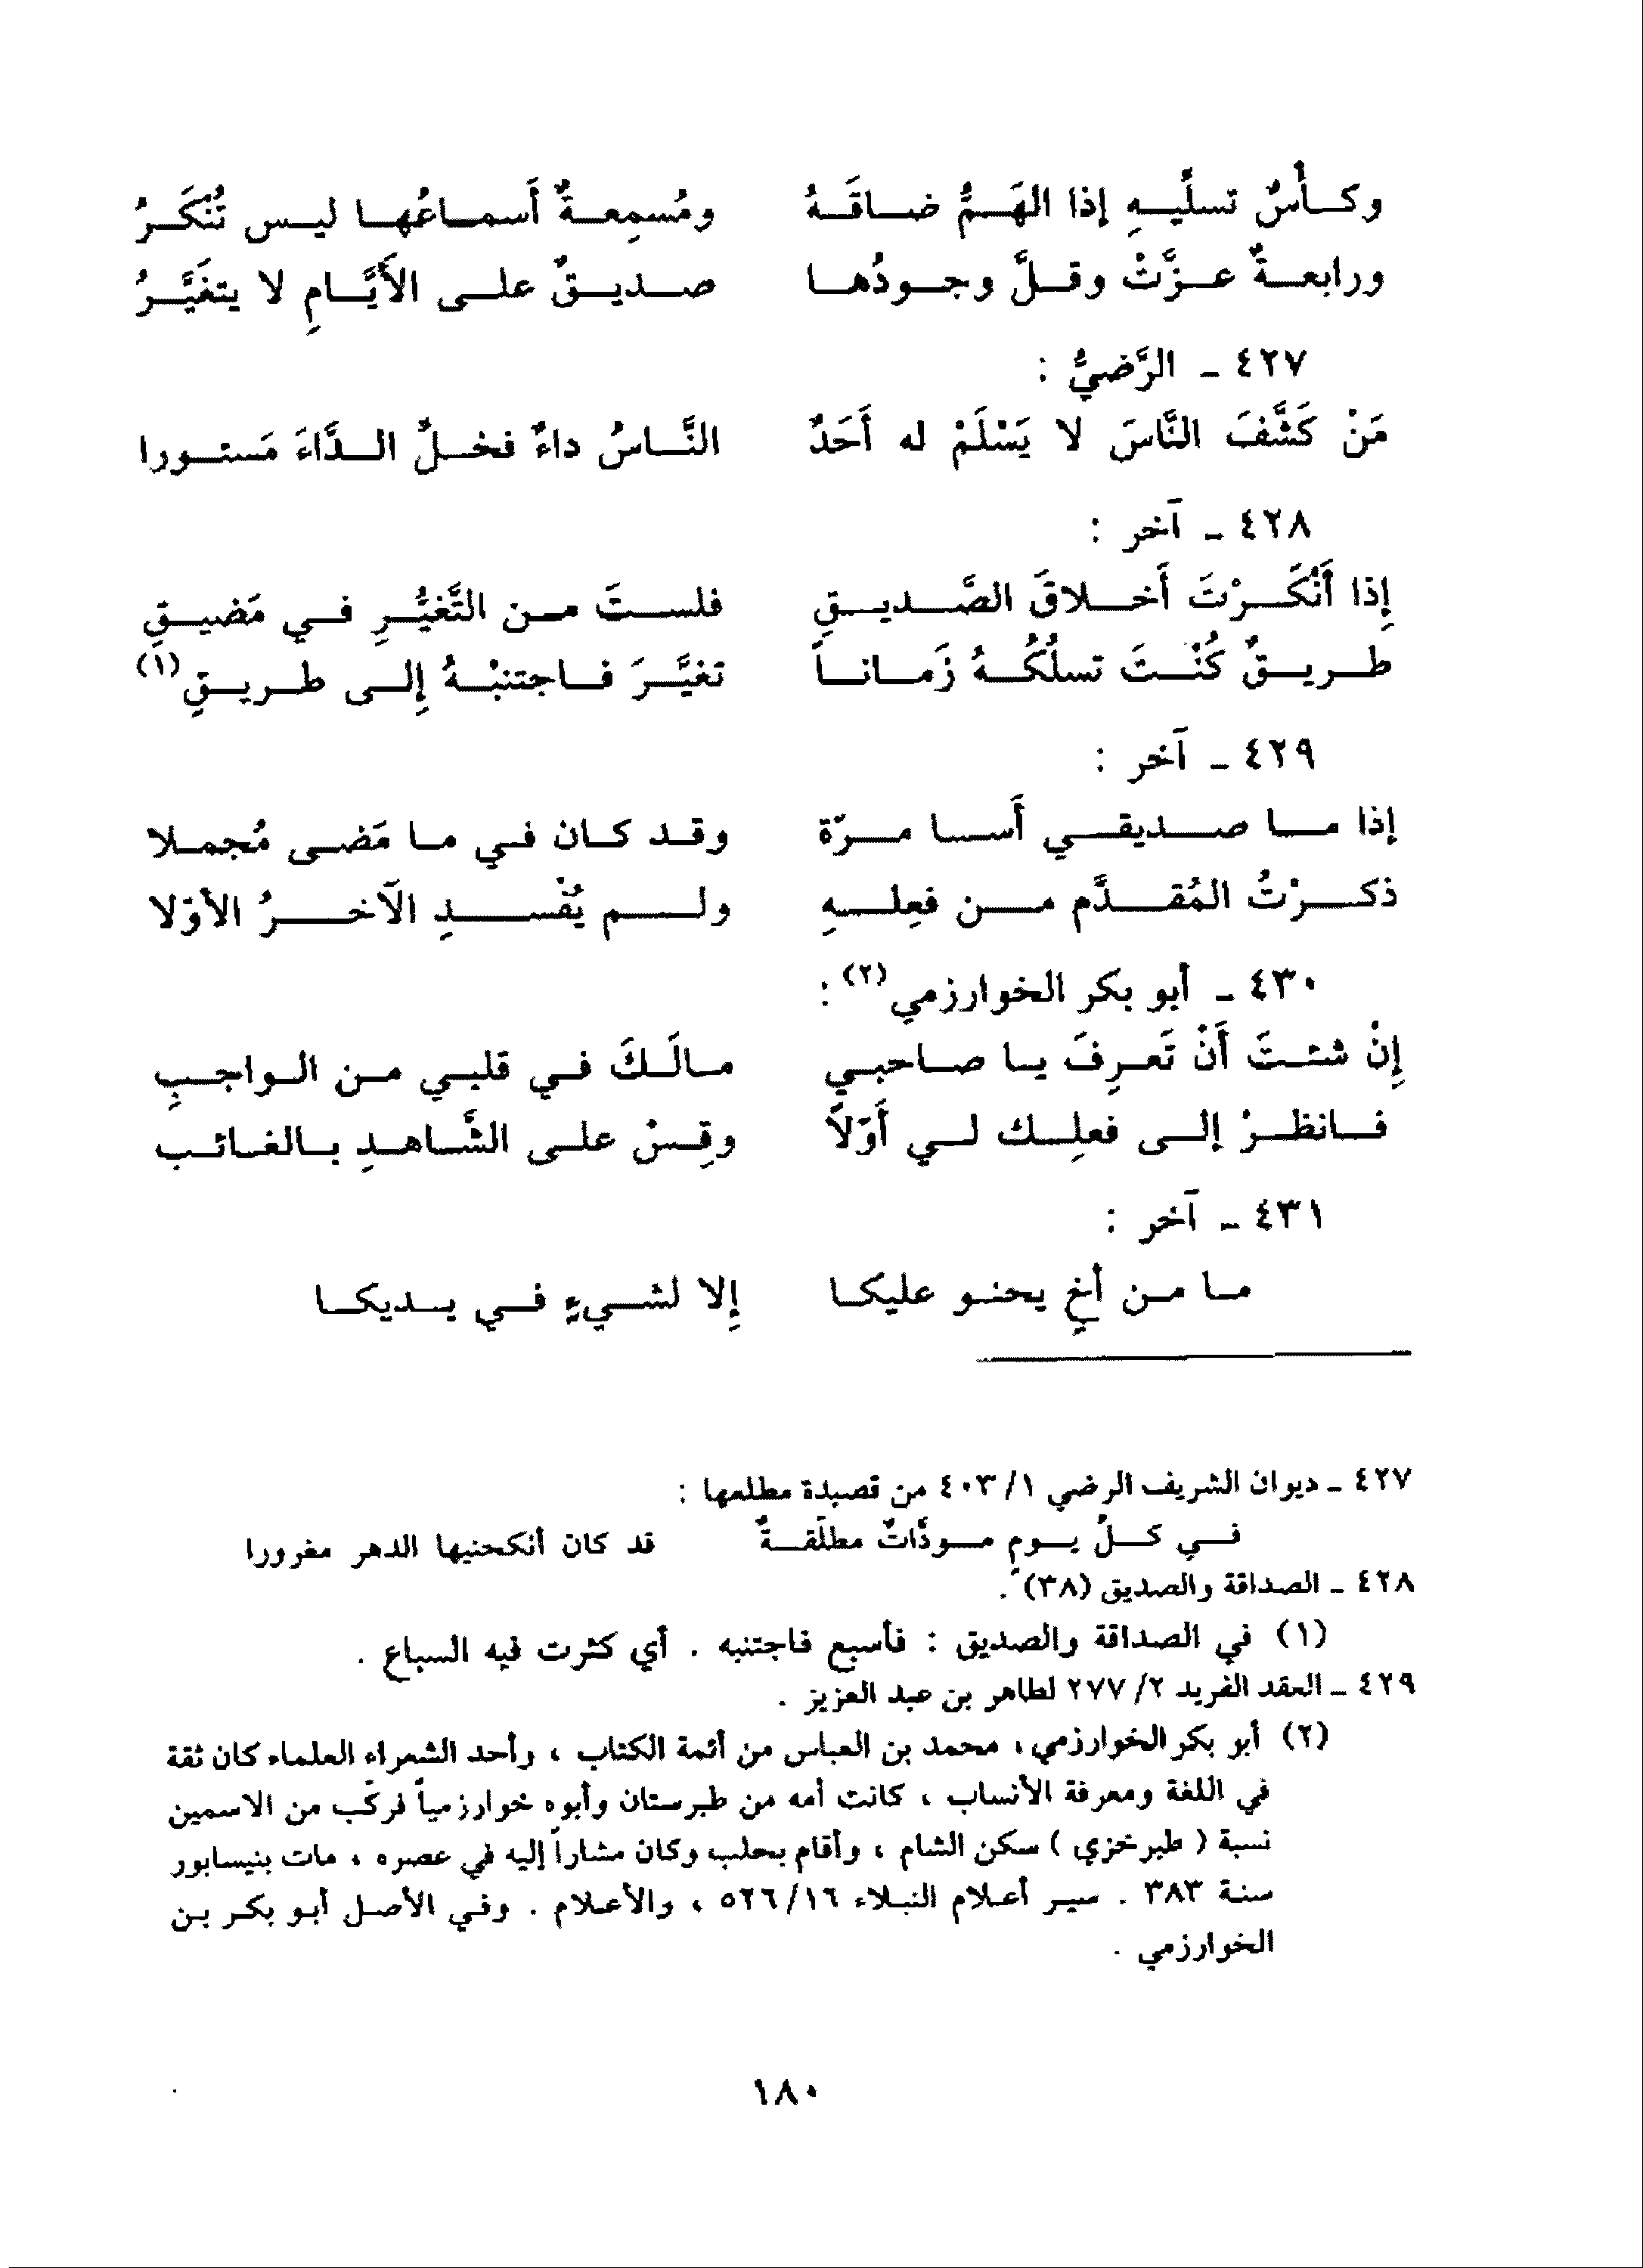 وكأسٌ تسلِّيهِ إذا الهَمُّ ضاقَهُ ومُسمِعةٌ أَسماعُها ليس تُنْكَرُ
ورابعةٌ عزَّتْ وقلَّ وجودُها صديقٌ على الأَيَّامِ لا يتغَيَّرُ
٤٢٧ - الرَّضيُّ :
مَنْ كَشَّفَ النَّاسَ لا يَسْلَمْ له أَحَدٌ النَّاسُ داءٌ فخلِّ الدَّاءَ مَستورا
٤٢٨ - آخر :
إِذا أَنْكَرْتَ أَخلاقَ الصَّديقِ فلستَ من التَّغيُّرِ في مَضيقِ
طريقٌ كُنْتَ تسلُكُهُ زَماناً تغيَّرَ فاجتنبْهُ إِلى طريقِ(١)
٤٢٩ - آخر :
إذا ما صديقي أَسا مرّة وقد كان في ما مَضى مُجملا
ذكرْتُ المُقدَّم من فعِلهِ ولم يُفْسدِ الآخرُ الأوّلا
٤٣٠ - أبو بكر الخوارزمي(٢) :
إِنْ شئتَ أَنْ تَعرِفَ يا صاحبي مالَكَ في قلبي من الواجبِ
فانظرْ إلى فعلِك لي أَوّلاً وقِسْ على الشَّاهدِ بالغائب
٤٣١ - آخر :
ما من أخٍ يحنو عليكا إِلا لشيءٍ في يديكا
٤٢٧ - ديوان الشريف الرضي ١/ ٤٠٣ من قصيدة مطلعها :
في كلِّ يومٍ مودَّاتٌ مطلّقةٌ قد كان أنكحنيها الدهر مغرورا
٤٢٨ - الصداقة والصديق (٣٨) .
(١) في الصداقة والصديق : فأسبع فاجتنبه . أي كثرت فيه السباع .
٤٢٩ - العقد الفريد ٢/ ٢٧٧ لطاهر بن عبد العزيز .
(٢) أبو بكر الخوارزمي ، محمد بن العباس من أئمة الكتاب ، وأحد الشعراء العلماء كان ثقة
في اللغة ومعرفة الأنساب ، كانت أمه من طبرستان وأبوه خوارزمياً فركّب من الاسمين
نسبة ( طبرخزي ) سكن الشام ، وأقام بحلب وكان مشاراً إليه في عصره ، مات بنيسابور
سنة ٣٨٣ . سير أعلام النبلاء ١٦/ ٥٢٦ ، والأعلام . وفي الأصل أبو بكر بن
الخوارزمي .
١٨٠